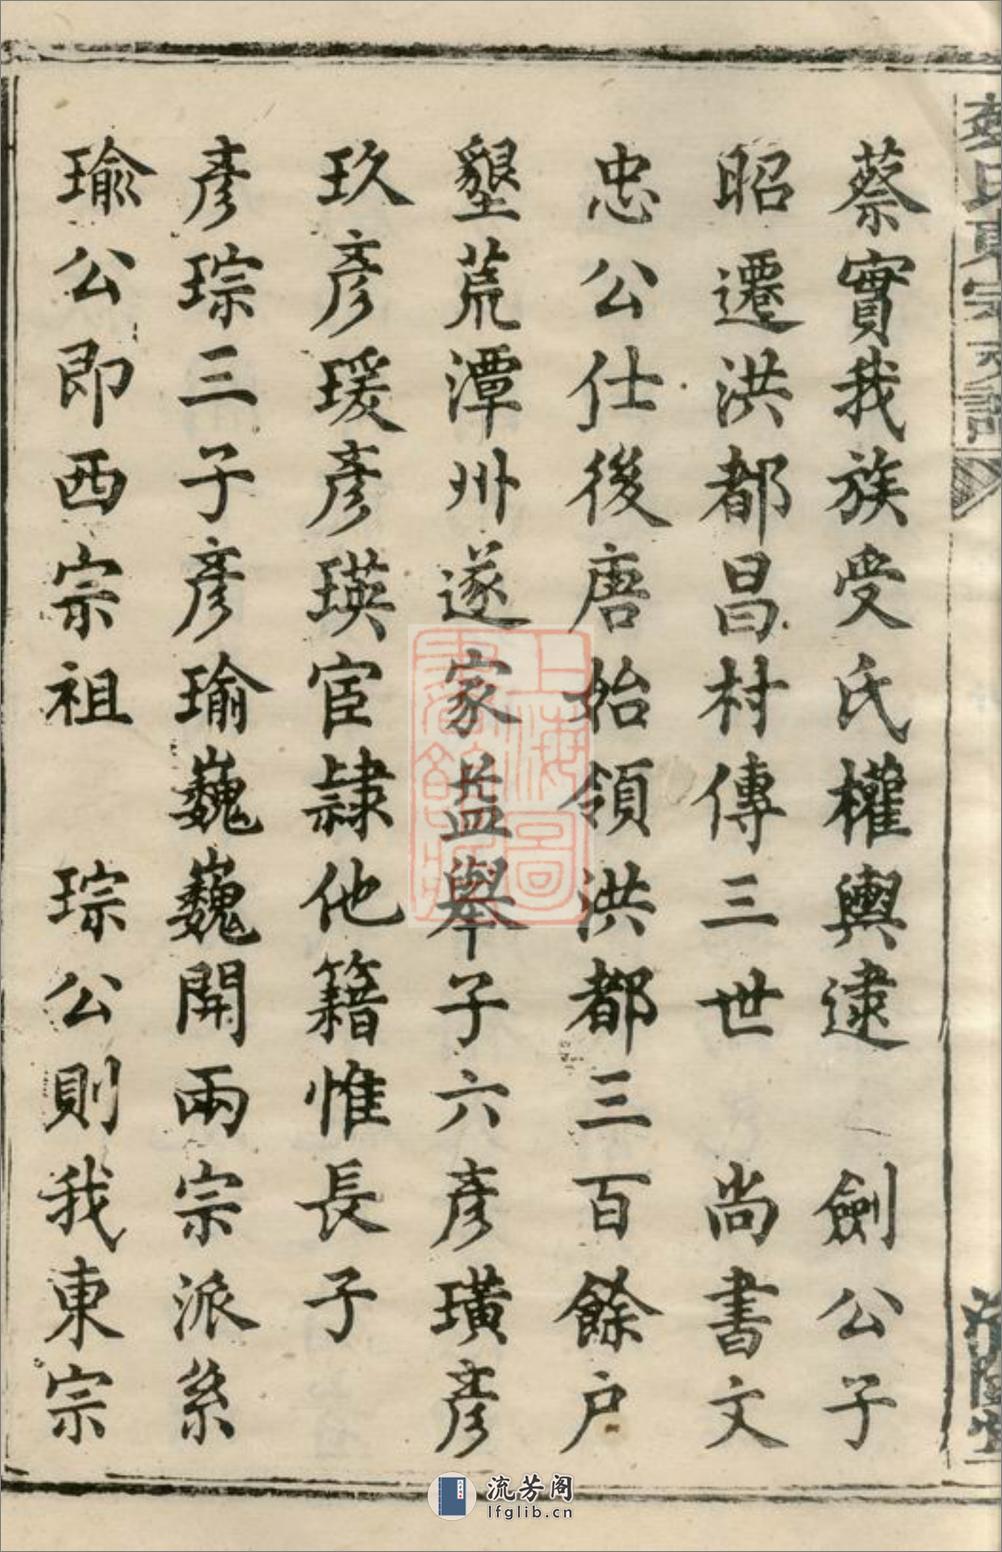 蔡實我族受氏權輿逮　劍公子
昭遷洪都昌村傳三世　尚書文
忠公仕後唐始領洪都三百餘户
墾荒潭州遂家益舉子六彥璜彥
玖彥瑗彥瑛宦隷他籍惟長子
彥琮三子彥瑜巍巍開兩宗派系
瑜公即西宗祖　琮公則我東宗
上海圖書館藏
流芳阁
lfglib.cn